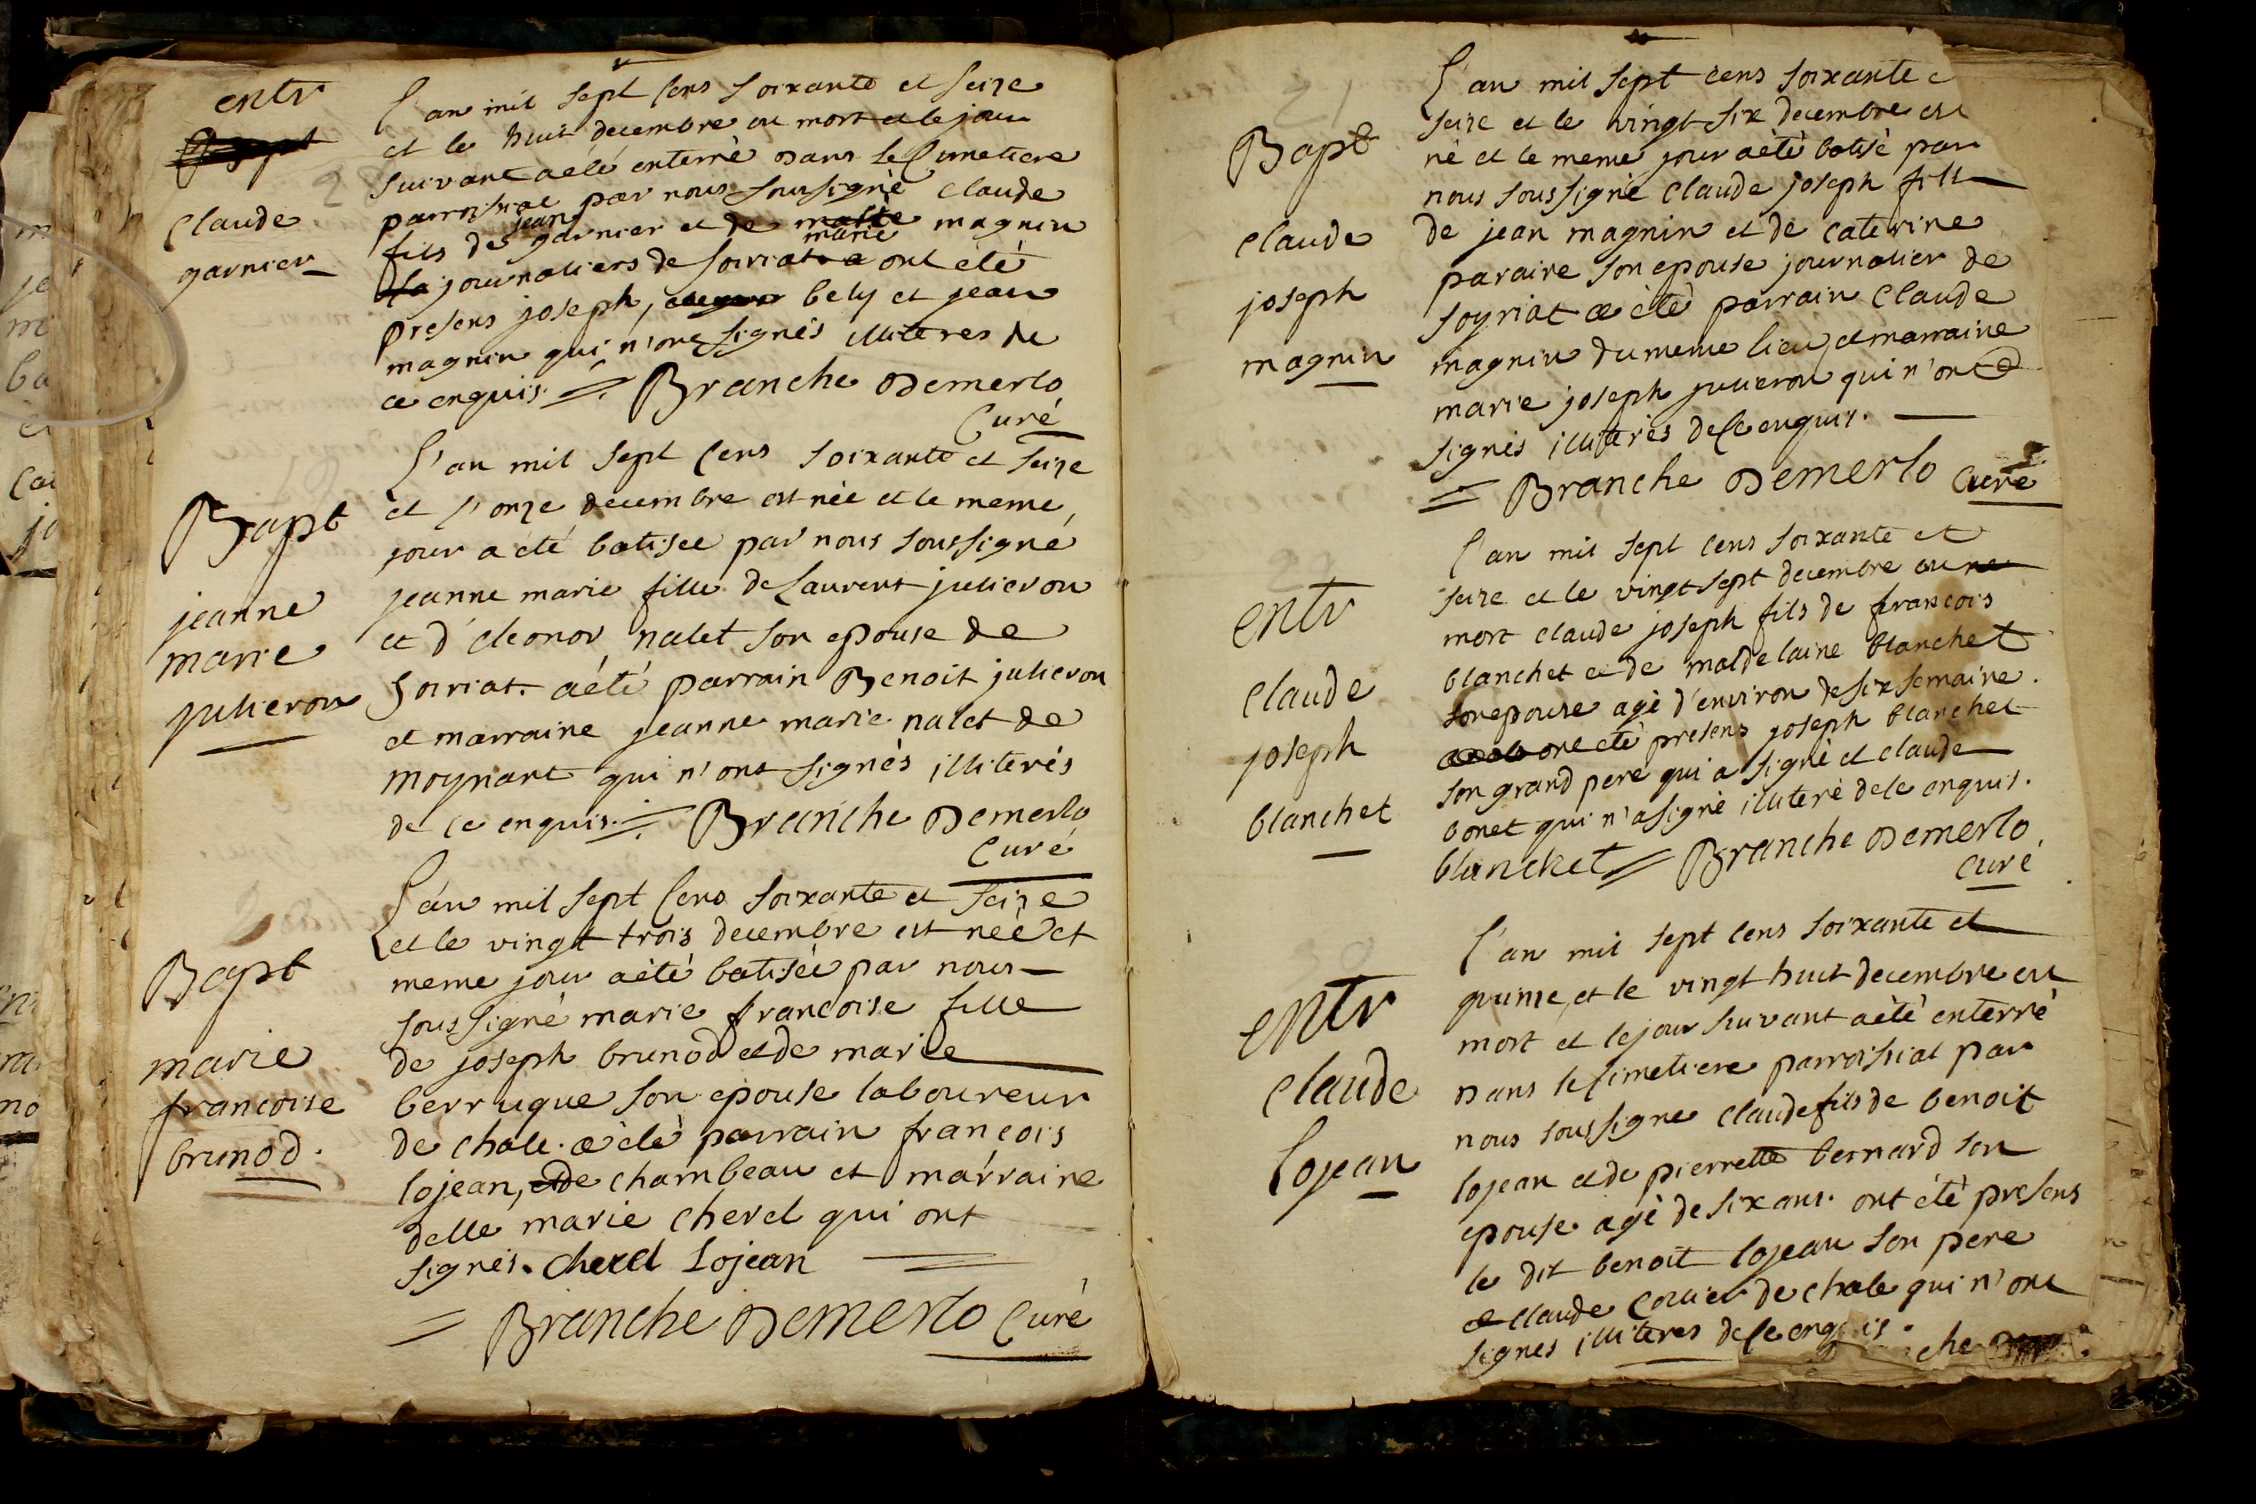 entr
Bapt
Claude
garnier
L'an mil sept cens soixante et seize
et le huit decembre est mort et le jour
suivant a eté enterré dans le Cimetiere
parroissial par nous soussigné Claude
fils de jean garnier et de marie magnin
journaliers de soiriat ont eté
presens joseph, bely et jean
magnin qui n'ont signés illiteres de
ce enquis. = Branche Demerlo
Curé
Bapt
jeanne
marie
julieron
L'an mil sept cens soixante et seize
et l'onze decembre est née et le meme
jour a eté batisée par nous soussigné
jeanne marie fille de Laurent julieron
et d'eleonor nalet son epouse de
soiriat. a été parrain Benoit julieron
et marraine jeanne marie nalet de
moynant qui n'ont signés illiterés
de ce enquis. = Branche Demerlo
Curé
Bapt
marie
francoise
brunod.
L'an mil sept cens soixante et seize
et le vingt trois decembre est née et
meme jour a été batisée par nous
soussigné marie francoise fille
de joseph brunod et de marie
berruque son epouse laboureur
de chale. a été parrain francois
lojean, de chambeau et marraine
delle marie cherel qui ont
signés. Cherel Lojean
= Branche Demerlo Curé
Bapt
claude
joseph
magnin
L'an mil sept cens soixante e
seize et le vingt six decembre est
né et le meme jour a été batisé par
nous soussigné claude joseph fils
de jean magnin et de caterine
paraire son epouse journalier de
soyriat a été parrain Claude
magnin du meme lieu, et marraine
marie joseph julieron qui n'ont
signés illiterés de ce enquis.
= Branche Demerlo Curé
entr
claude
joseph
blanchet
L'an mil sept cens soixante et
seize et le vingt sept decembre est
mort claude joseph fils de francois
blanchet et de maldelaine blanchet
son epouse agé d'environ de six semaine.
ont eté presens joseph blanchet
son grand pere qui a signé et claude
bonet qui n'a signé illiteré de ce enquis.
blancket = Branche Demerlo
Curé
entr
claude
Lojean
L'an mil sept cens soixante et
quinze, et le vingt huit decembre est
mort et le jour suivant a été enterré
dans le cimetiere parroissial par
nous soussigne claude fils de benoit
lojean et de pierrette bernard son
epouse agé de six ans. ont été presens
le dit benoit lojean son pere
et claude de chale qui n'ont
signés illiteres de ce enquis.
che